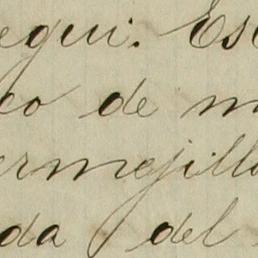 egui. Es
eo de m
ermejill
da del